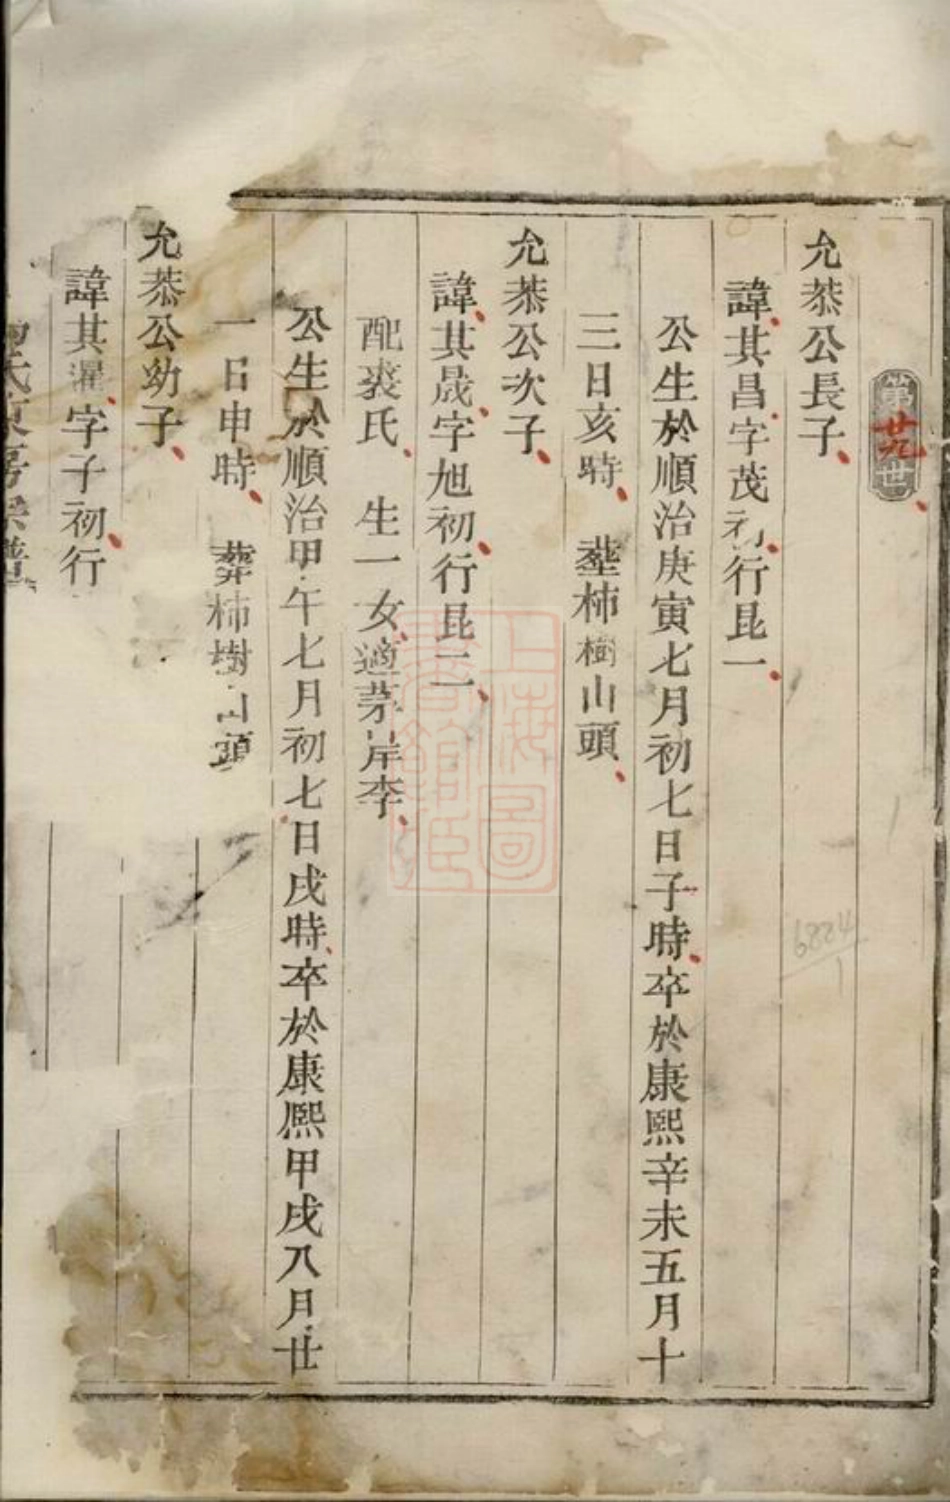 第廿九世
允恭公長子
諱其昌字茂初行昆一
公生於順治庚寅七月初七日子時卒於康熙辛未五月十
三日亥時　塟柿樹山頭
允恭公次子
諱其晟字旭初行昆二
配裘氏　生一女適茅岸李
公生於順治甲午七月初七日戌時卒於康熙甲戌八月廿
一日申時　葬柿樹山頭
允恭公幼子
諱其濯字子初行
上海圖書館藏
6884
1